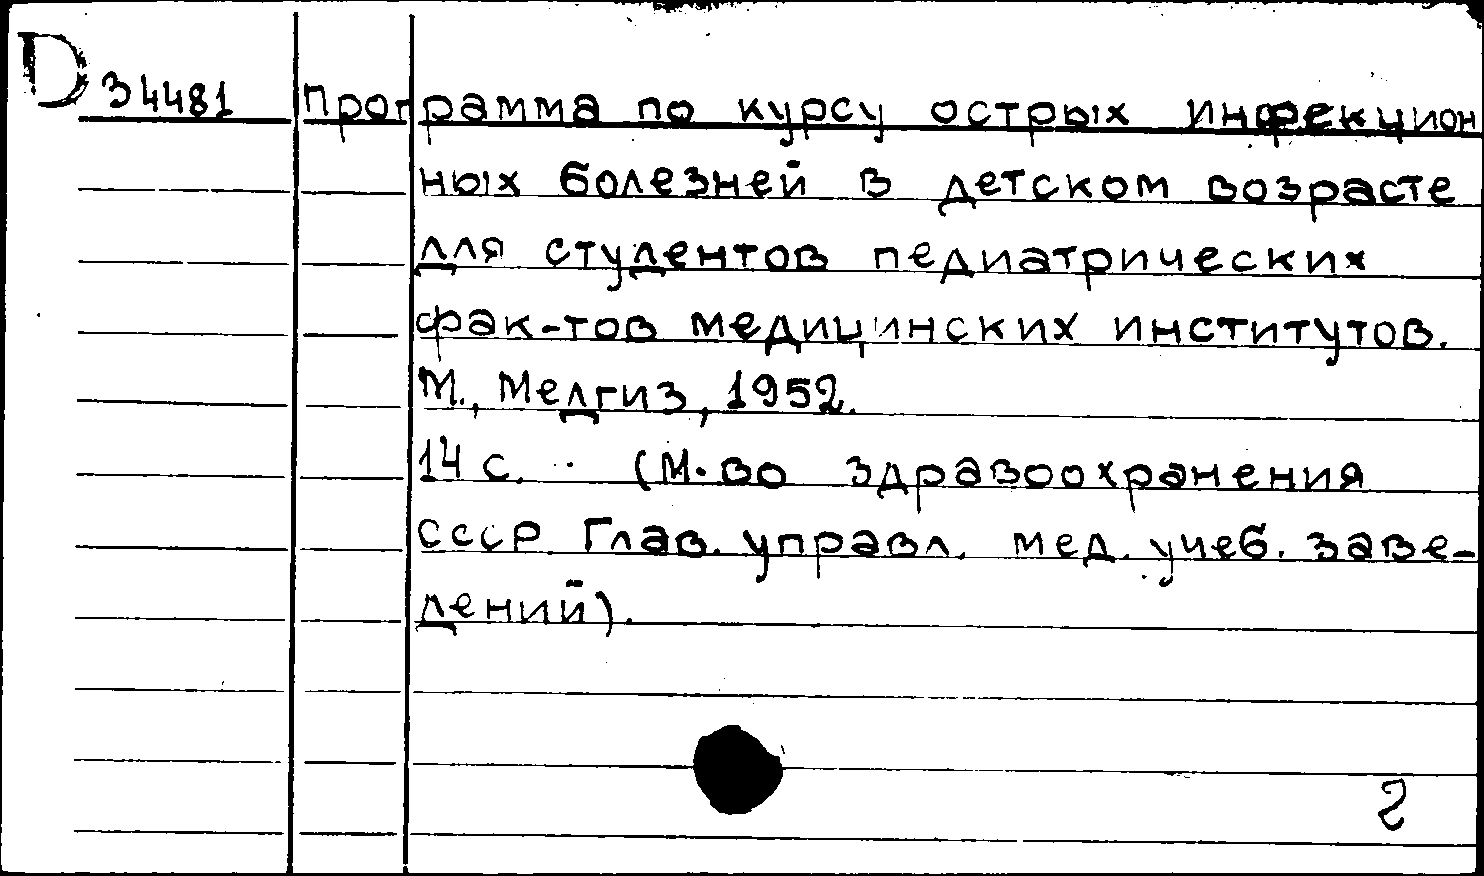 D 34481 Программа по курсу острых инфекцион
ных болезней в детском возрасте
для студентов педиатрических
фак-тов медицинских институтов.
М., Медгиз, 1952.
14 с. (М-во здравоохранения
СССР. Глав. управл. мед. учеб. заве-
дений).
г